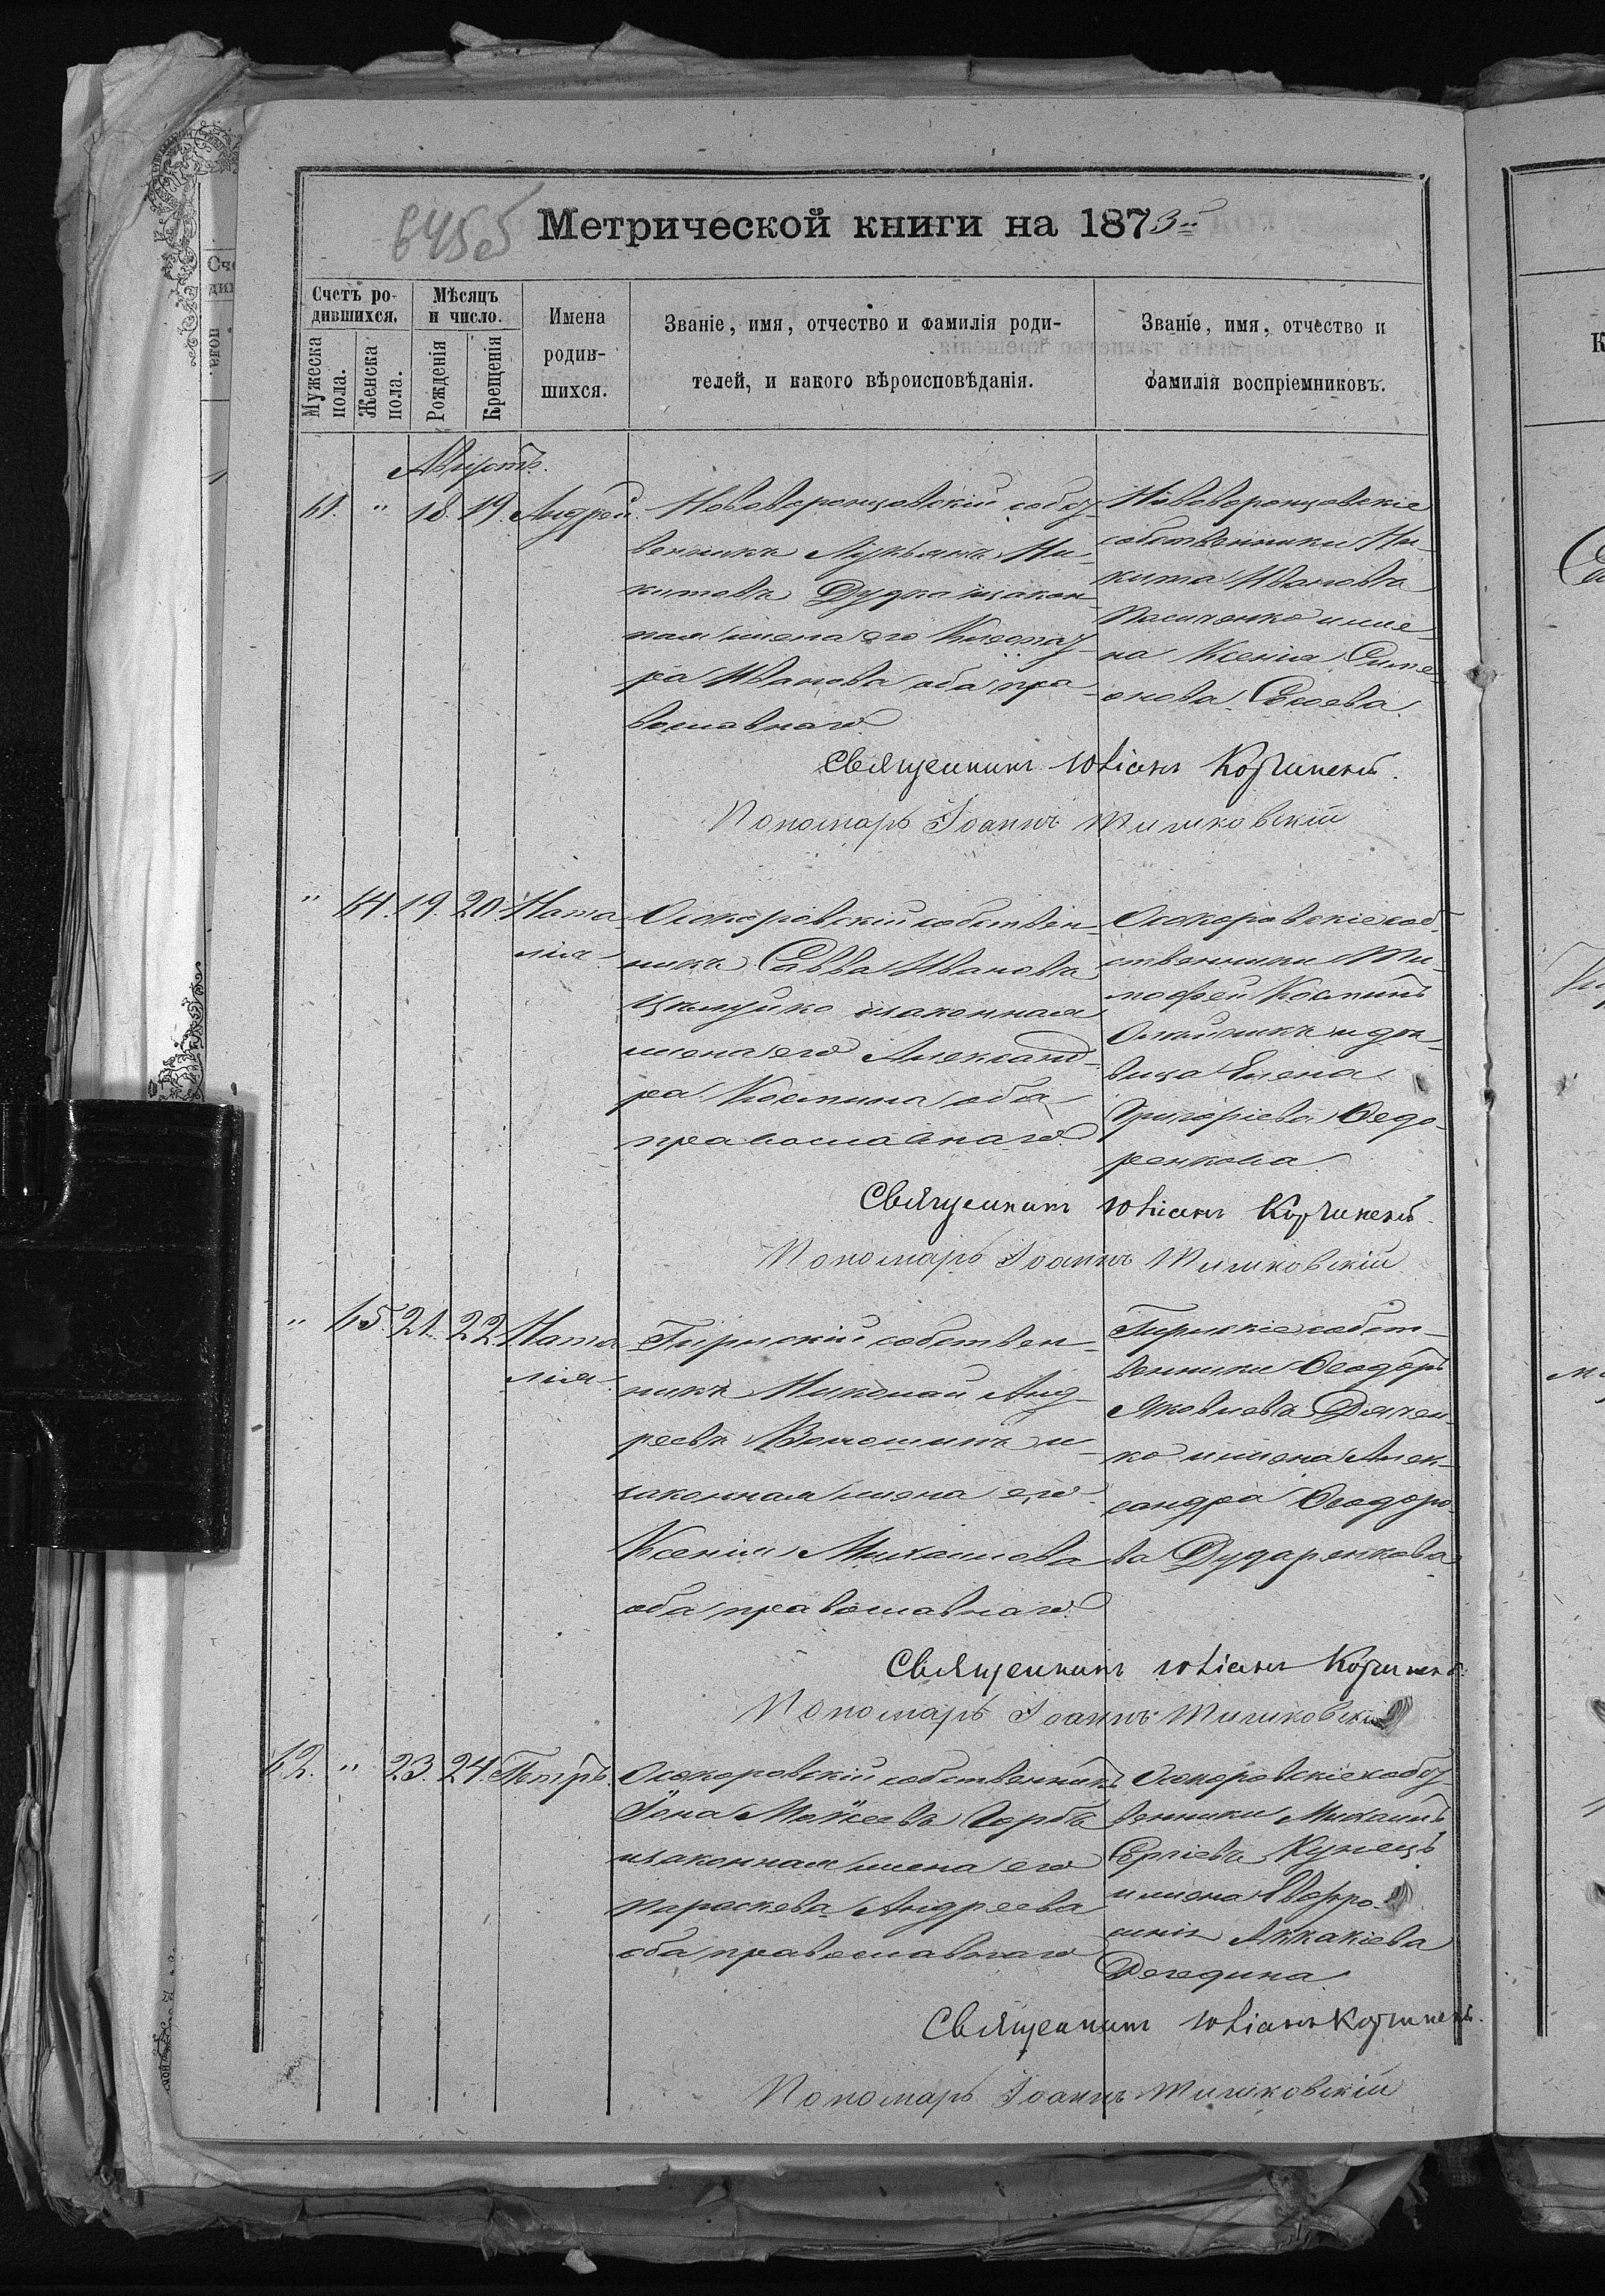 645об
Метрической книги на 1873й
Счетъ ро-
дившихся.
Мужеска
пола.
Женска
пола.
Мѣсяцъ
и число.
Рожденія
Крещенія
Имена
родив-
шихся.
Званіе, имя, отчество и фамилія роди-
телей, и какого вѣроисповѣданія.
Званіе, имя, отчество и
фамилія воспріемниковъ.
Августъ.
61. " 18. 19. Андрей.
Нововоронцовскій собст-
венникъ Лукьянъ Ни-
китовъ Дудка и закон-
ная жена его Клеопат-
ра Иванова оба пра-
вославнаго.
Нововоронцовскіе
собственники Ни-
кита Ивановъ
и же-
на Ксенія Симе-
онова
Священникъ Юліанъ
Пономарь Іоаннъ Тишковскій
" 64. 19. 20. Ната-
лія.
Осокоровскій собствен-
никъ Савва Ивановъ
и законная
жена его Александ-
ра Костина оба
православнаго.
Осокоровскіе соб-
ственники Ти-
мофей Костинъ
и дѣ-
вица Елена
Григоріева Ѳедо-
ренкова.
Священникъ Юліанъ
Пономарь Іоаннъ Тишковскій
" 65. 21. 22. Ната-
лія.
Гирлскій собствен-
никъ Николай Анд-
реевъ Волошинъ и
законная жена его
Ксенія Михаилова
оба православнаго.
Гирлскіе собст-
венники Ѳеодоръ
Яковлевъ Дячен-
ко и жена Алек-
сандра Ѳеодоро-
ва Дударенкова
Священникъ Юліанъ
Пономарь Іоаннъ Тишковскій
62. " 23. 24. Петръ
Осокоровскій собственникъ
Іона Моѵсеевъ Горбъ
и законная жена его
Параскева Андреева
оба православнаго
Осокоровскіе собст-
венники Михаилъ
Сергіевъ Кунецъ
и жена Евфро-
синія Аккакіева
Дегедина
Священникъ Юліанъ
Пономарь Іоаннъ Тишковскій